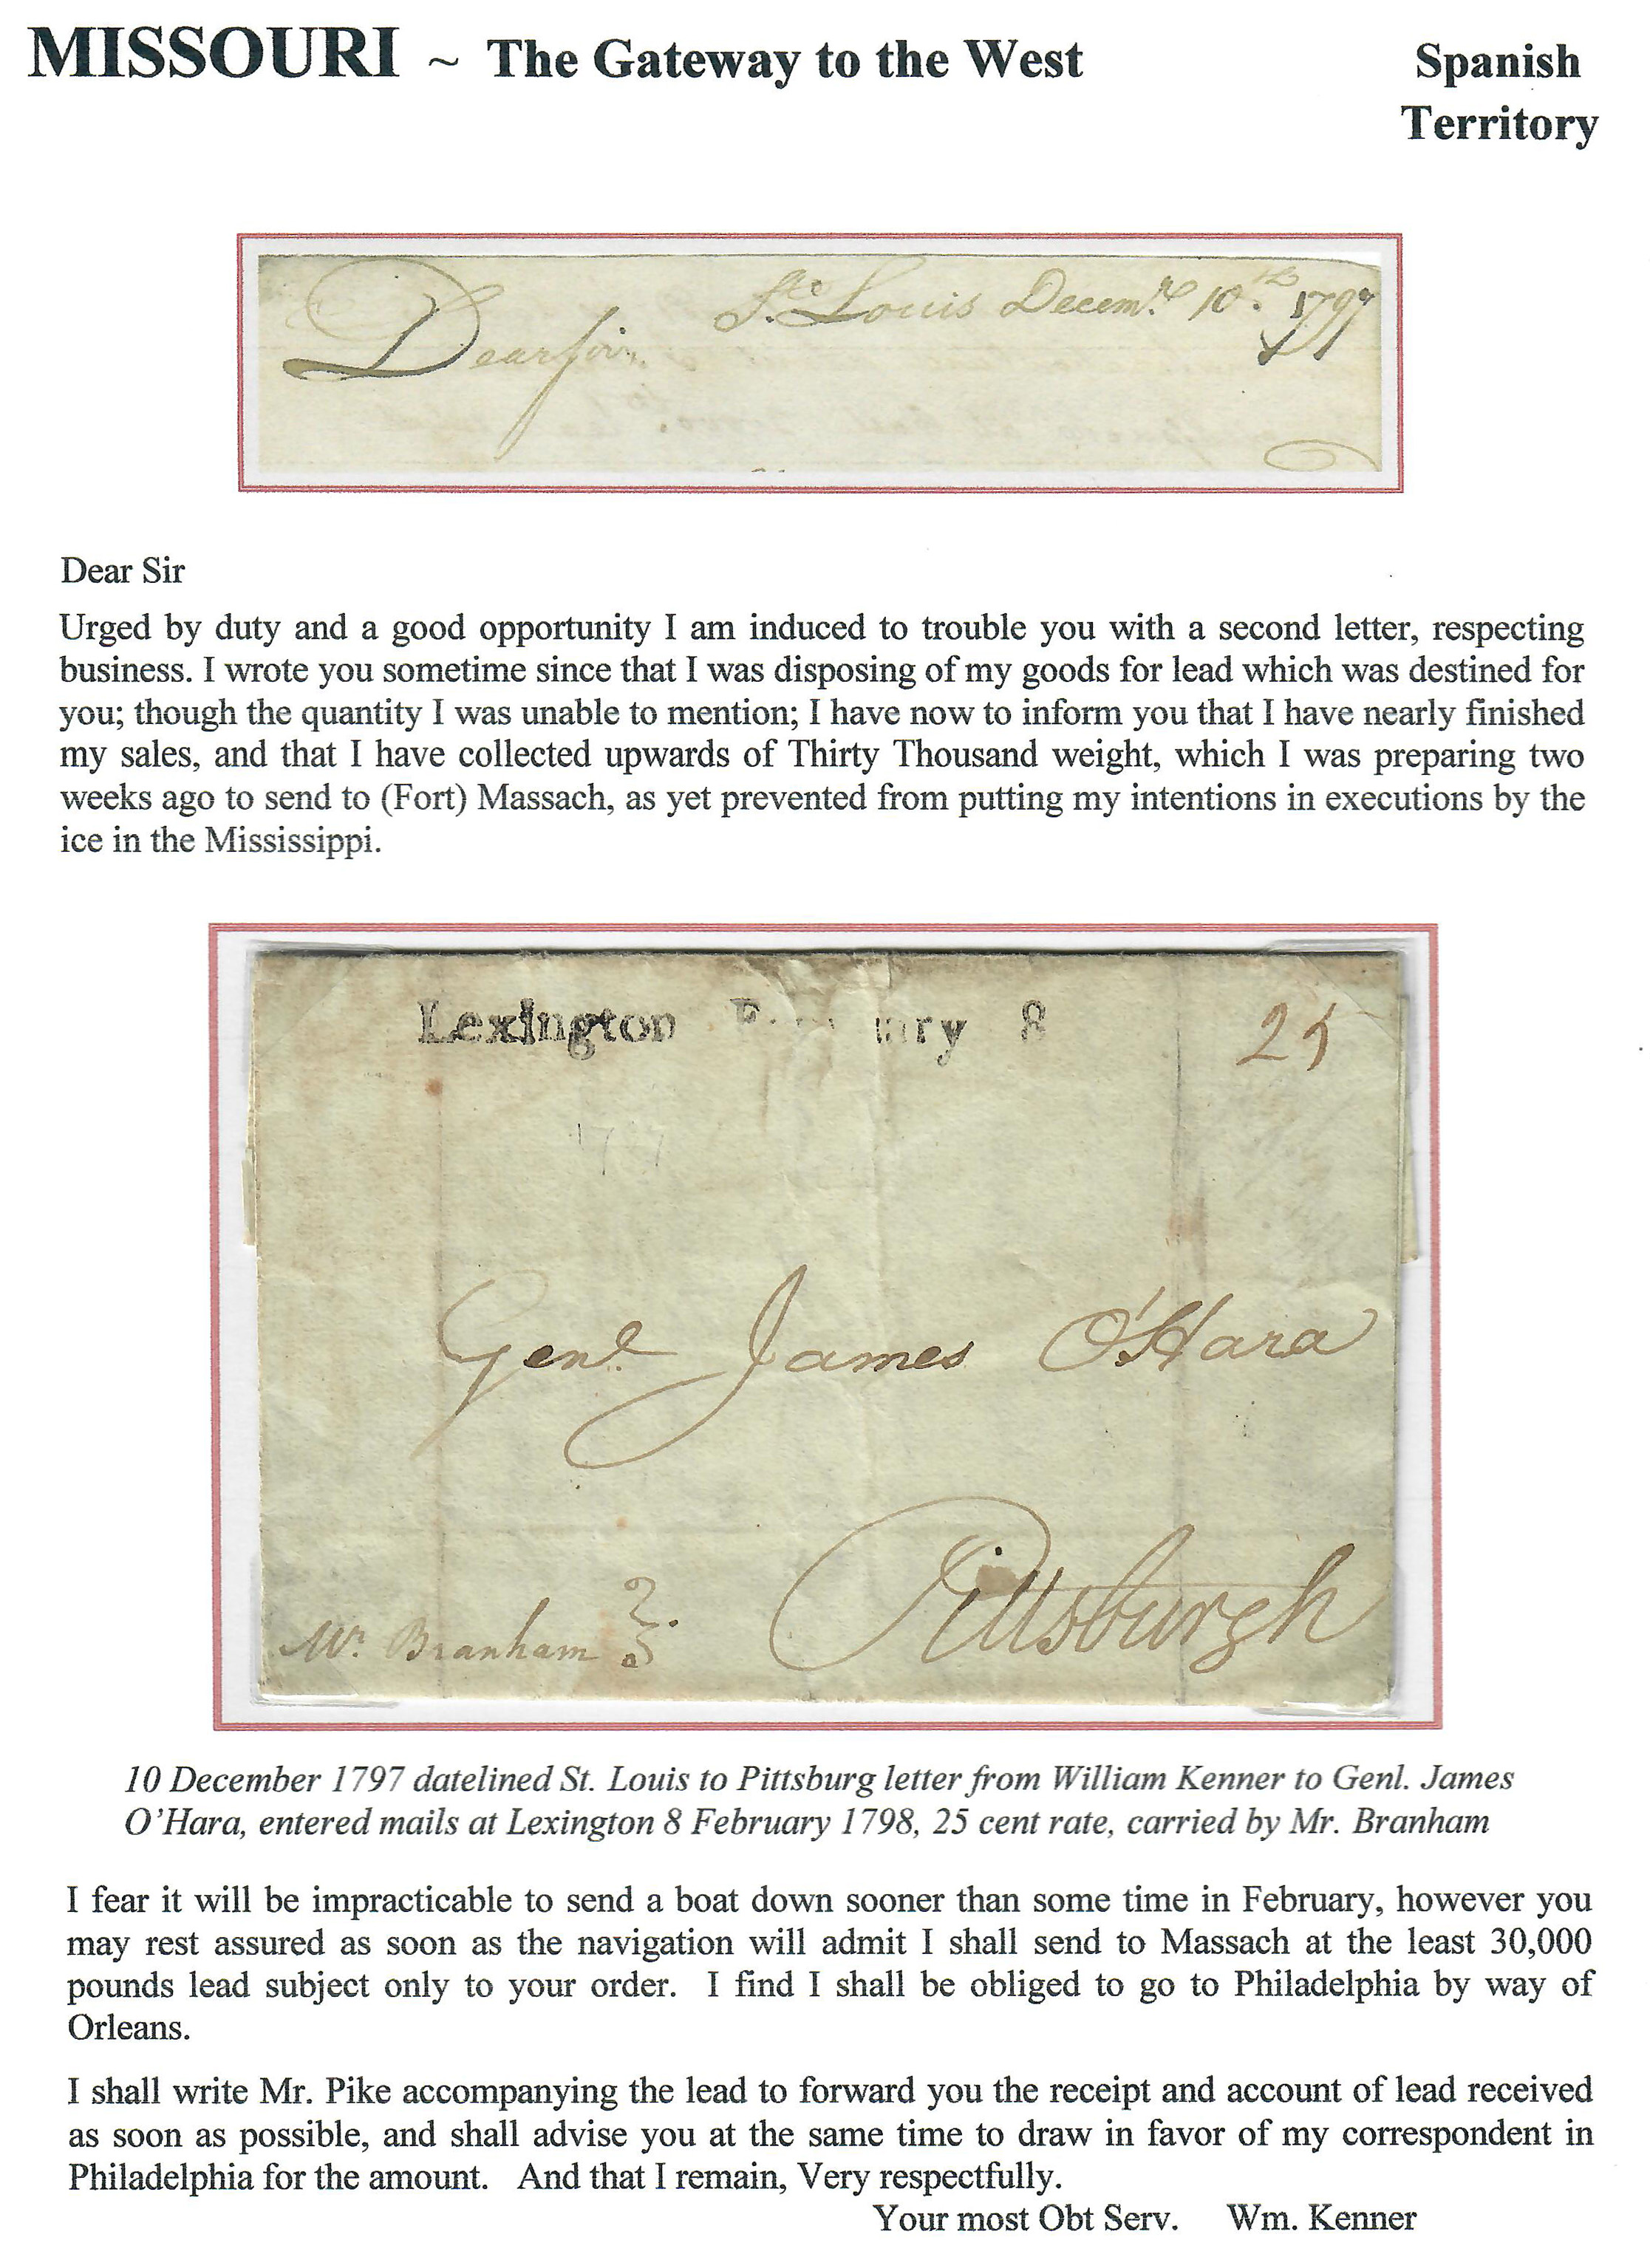 MISSOURI ~ The Gateway to the West
Spanish
Territory
Ste Louis Decemr 10th 1797
Dear Sir
Dear Sir
Urged by duty and a good opportunity I am induced to trouble you with a second letter, respecting
business. I wrote you sometime since that I was disposing of my goods for lead which was destined for
you; though the quantity I was unable to mention; I have now to inform you that I have nearly finished
my sales, and that I have collected upwards of Thirty Thousand weight, which I was preparing two
weeks ago to send to (Fort) Massach, as yet prevented from putting my intentions in executions by the
ice in the Mississippi.
Lexington ary 8
25
Genl James O'Hara
Pittsburgh
Mr. Branham
10 December 1797 datelined St. Louis to Pittsburg letter from William Kenner to Genl. James
O'Hara, entered mails at Lexington 8 February 1798, 25 cent rate, carried by Mr. Branham
I fear it will be impracticable to send a boat down sooner than some time in February, however you
may rest assured as soon as the navigation will admit I shall send to Massach at the least 30,000
pounds lead subject only to your order. I find I shall be obliged to go to Philadelphia by way of
Orleans.
I shall write Mr. Pike accompanying the lead to forward you the receipt and account of lead received
as soon as possible, and shall advise you at the same time to draw in favor of my correspondent in
Philadelphia for the amount. And that I remain, Very respectfully.
Your most Obt Serv. Wm. Kenner